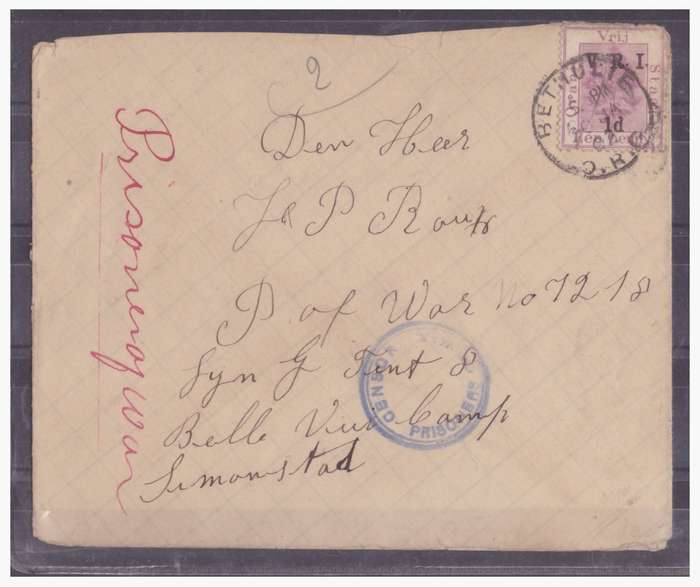 2
Vrij
V.R.I.
Oranje Staat
1d
Een Penny
BETHULIE
JA
O.R.C
Den Heer
J P Roux
P of War No 7218
Lyn G Tent 8
Belle Vue Camp
Simonstad
Prisoner of war
CENSOR PRISONERS